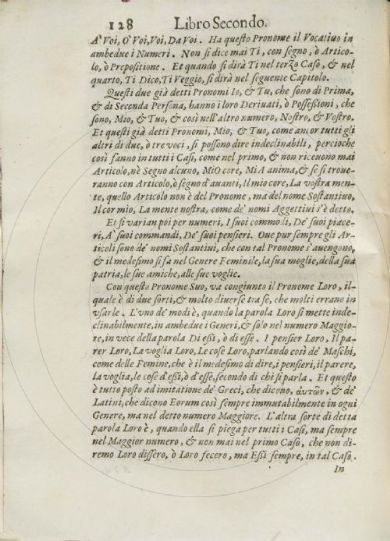 128 Libro Secondo.
A' Voi, O' Voi, Voi, Da Voi. Ha questo Pronome il Vocativo in
ambedue i Numeri. Non si dice mai Ti, con segno, ò Artico-
lo, ò Prepositione. Et quando si dirà Ti nel terzo Caso, & nel
quarto, Ti Dico, Ti Veggio, si dirà nel seguente Capitolo.
Questi due già detti Pronomi Io, & Tu, che sono di Prima,
& di Seconda Persona, hanno i loro Derivati, ò Possessioni, che
sono, Mio, & Tuo, & così nell'altro numero, Nostro, & Vostro.
Et questi già detti Pronomi, Mio, & Tuo, come ancor tutti gli
altri di due, ò tre voci, si possono dire indeclinabili, percioche
così fanno in tutti i Casi, come nel primo, & non ricevono mai
Articolo, nè Segno alcuno, MiO core, MiA anima, & se si trove-
ranno con Articolo, ò segno d'avanti, Il mio core, La vostra men-
te, quello Articolo non è del Pronome, ma del nome Sostantivo,
Il cor mio, La mente nostra, come de' nomi Aggettivi s'è detto.
Et si varian poi per numeri, I suoi commodi, De' suoi piace-
ri, A' suoi commandi, Da' suoi pensieri. Oue pur sempre gli Ar-
ticoli sono de' nomi Sostantivi, che con tal Pronome s'auengono,
& il medesimo si fà nel Genere Feminile, la sua moglie, della sua
patria, le sue amiche, alle sue voglie.
Con questo Pronome Suo, va congiunto il Pronome Loro, il-
quale è di due sorti, & molto diverse tra se, che molti errano in
usarle. L'uno de' modi è, quando la parola Loro si mette inde-
clinabilmente, in ambedue i Generi, & solo nel numero Maggio-
re, in vece della parola Di essi, ò di esse. I pensier Loro, Il pa-
rer Loro, La voglia Loro, Le cose Loro, parlando così de' Maschi,
come delle Femine, che è il medesimo di dire, i pensieri, il parere,
la voglia, le cose d'essi, ò d'esse, secondo di chi si parla. Et questo
è tutto posto ad imitatione de' Greci, che dicono, ἀυτῶν, & de'
Latini, che dicono Eorum così sempre immutabilmente in ogni
Genere, ma nel detto numero Maggiore. L'altra sorte di detta
parola Loro è, quando ella si piega per tutti i Casi, ma sempre
nel Maggior numero, & non mai nel primo Caso, che non di-
remo Loro dissero, ò Loro fecero, ma Essi sempre, in tal Caso.
In